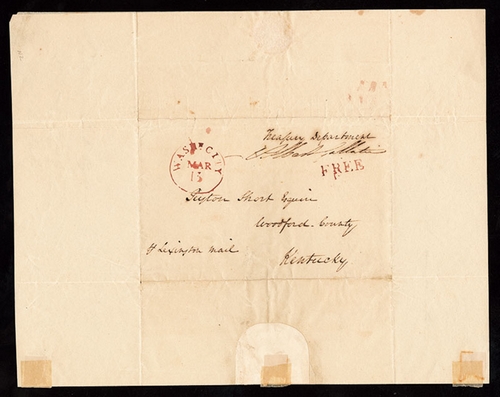 Treasury Department
Albert Gallatin
FREE
WASHN CITY
MAR
15
Peyton Short Esquire
Woodford County
Lexington Mail
Kentucky